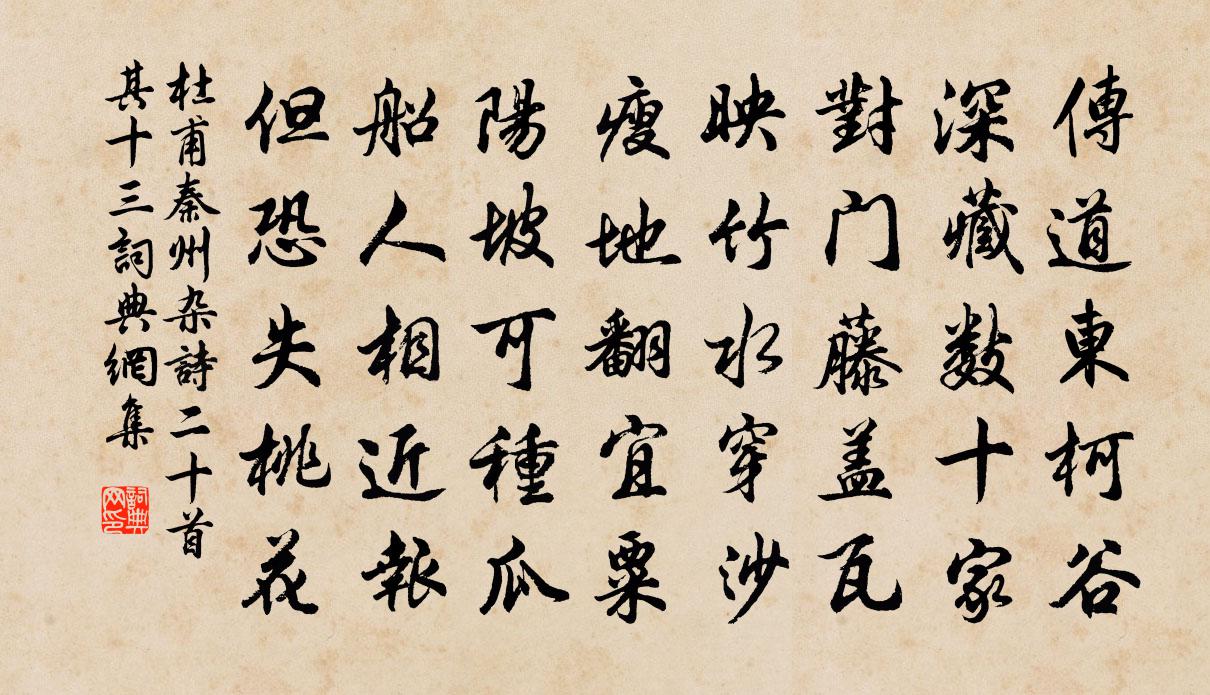 傳道東柯谷
深藏數十家
對门藤盖瓦
映竹水穿沙
瘦地翻宜粟
陽坡可種瓜
船人相近報
但恐失桃花
杜甫秦州杂詩二十首
其十三詞典網集
詞典
网印